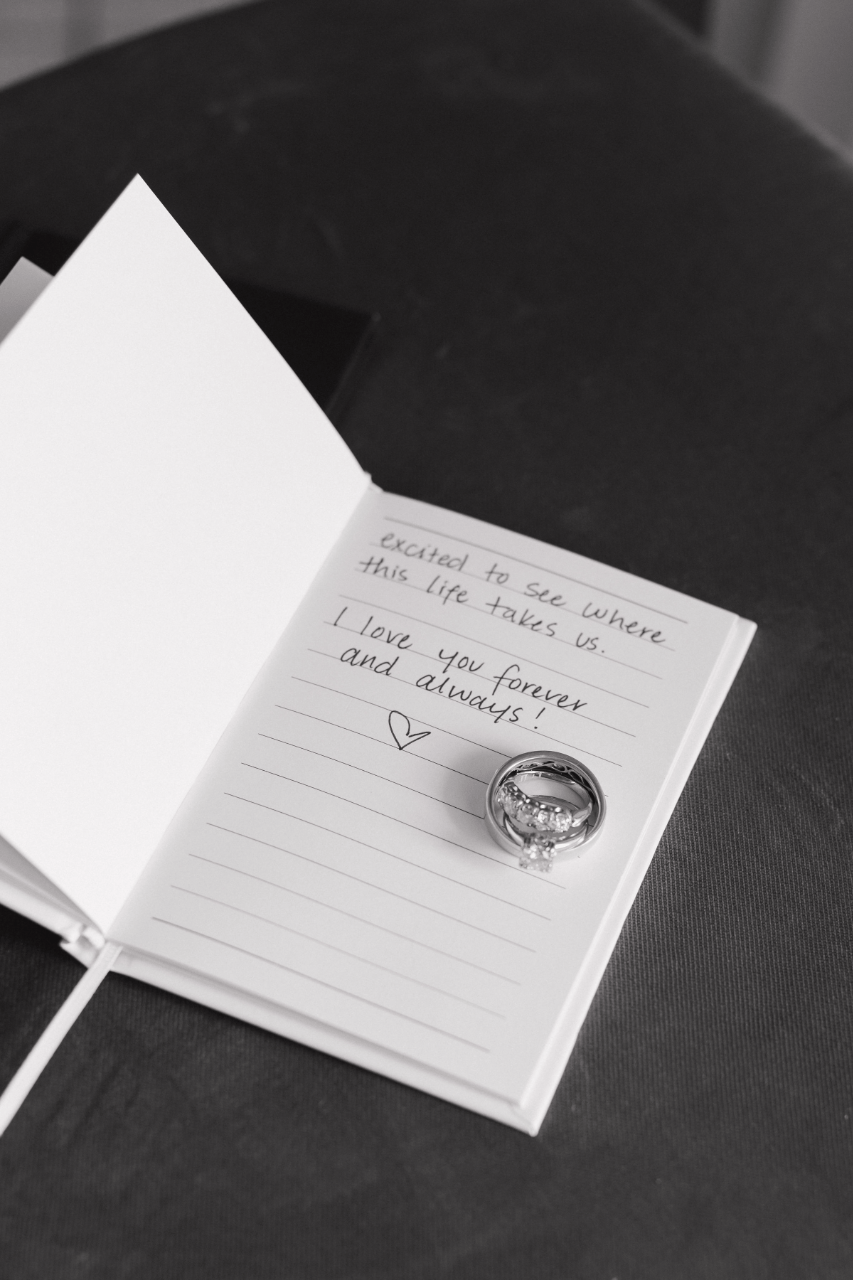 excited to see where
this life takes us.
I love you forever
and always!